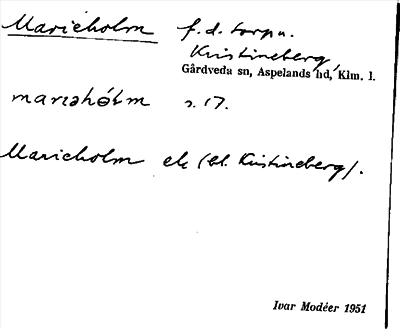 Marieholm f.d. torp u.
Kristineberg,
Gårdveda sn, Aspelands hd, Klm. l.
mariahólm s. 17.
Marieholm ek (bl. Kristineberg).
Ivar Modéer 1951